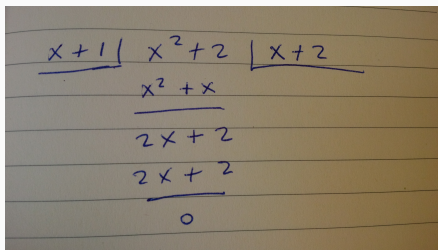 x + 1 | x² + 2 | x + 2
x² + x
2x + 2
2x + 2
0